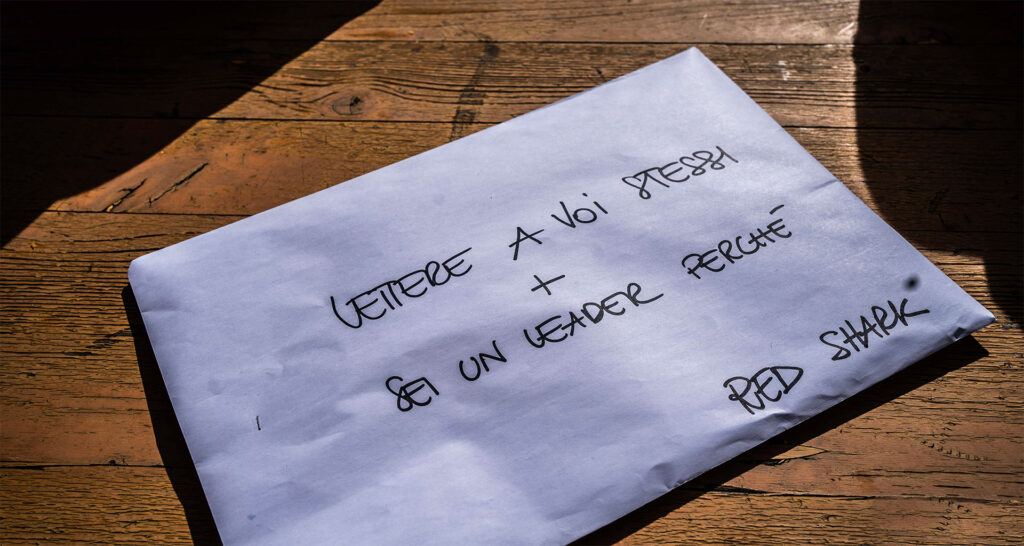 LETTERE A VOI STESSI
+
SEI UN LEADER PERCHÉ
RED SHARK